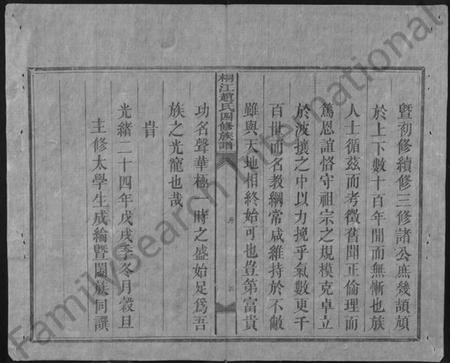 暨初修續修三修諸公庶幾頡頏
於上下數十百年間而無慚也族
人士循茲而考徵舊聞正倫理而
篤恩誼恪守祖宗之規模克卓立
於波攘之中以力挽乎氣數更千
百世而名教綱常咸維持於不敝
雖與天地相終始可也豈第富貴
桐江趙氏四修族譜
序
功名聲華極一時之盛始足爲吾
族之光寵也哉
旹
光緒二十四年戊戌季冬月穀旦
主修太學生成綸暨闔族同譔
FamilySearch International